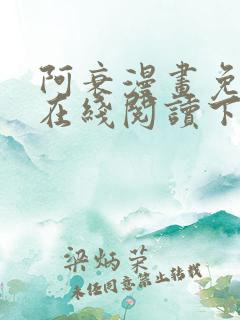 阿衰漫畫免
在綫閱讀下
梁炳菜
未经同意禁止转载